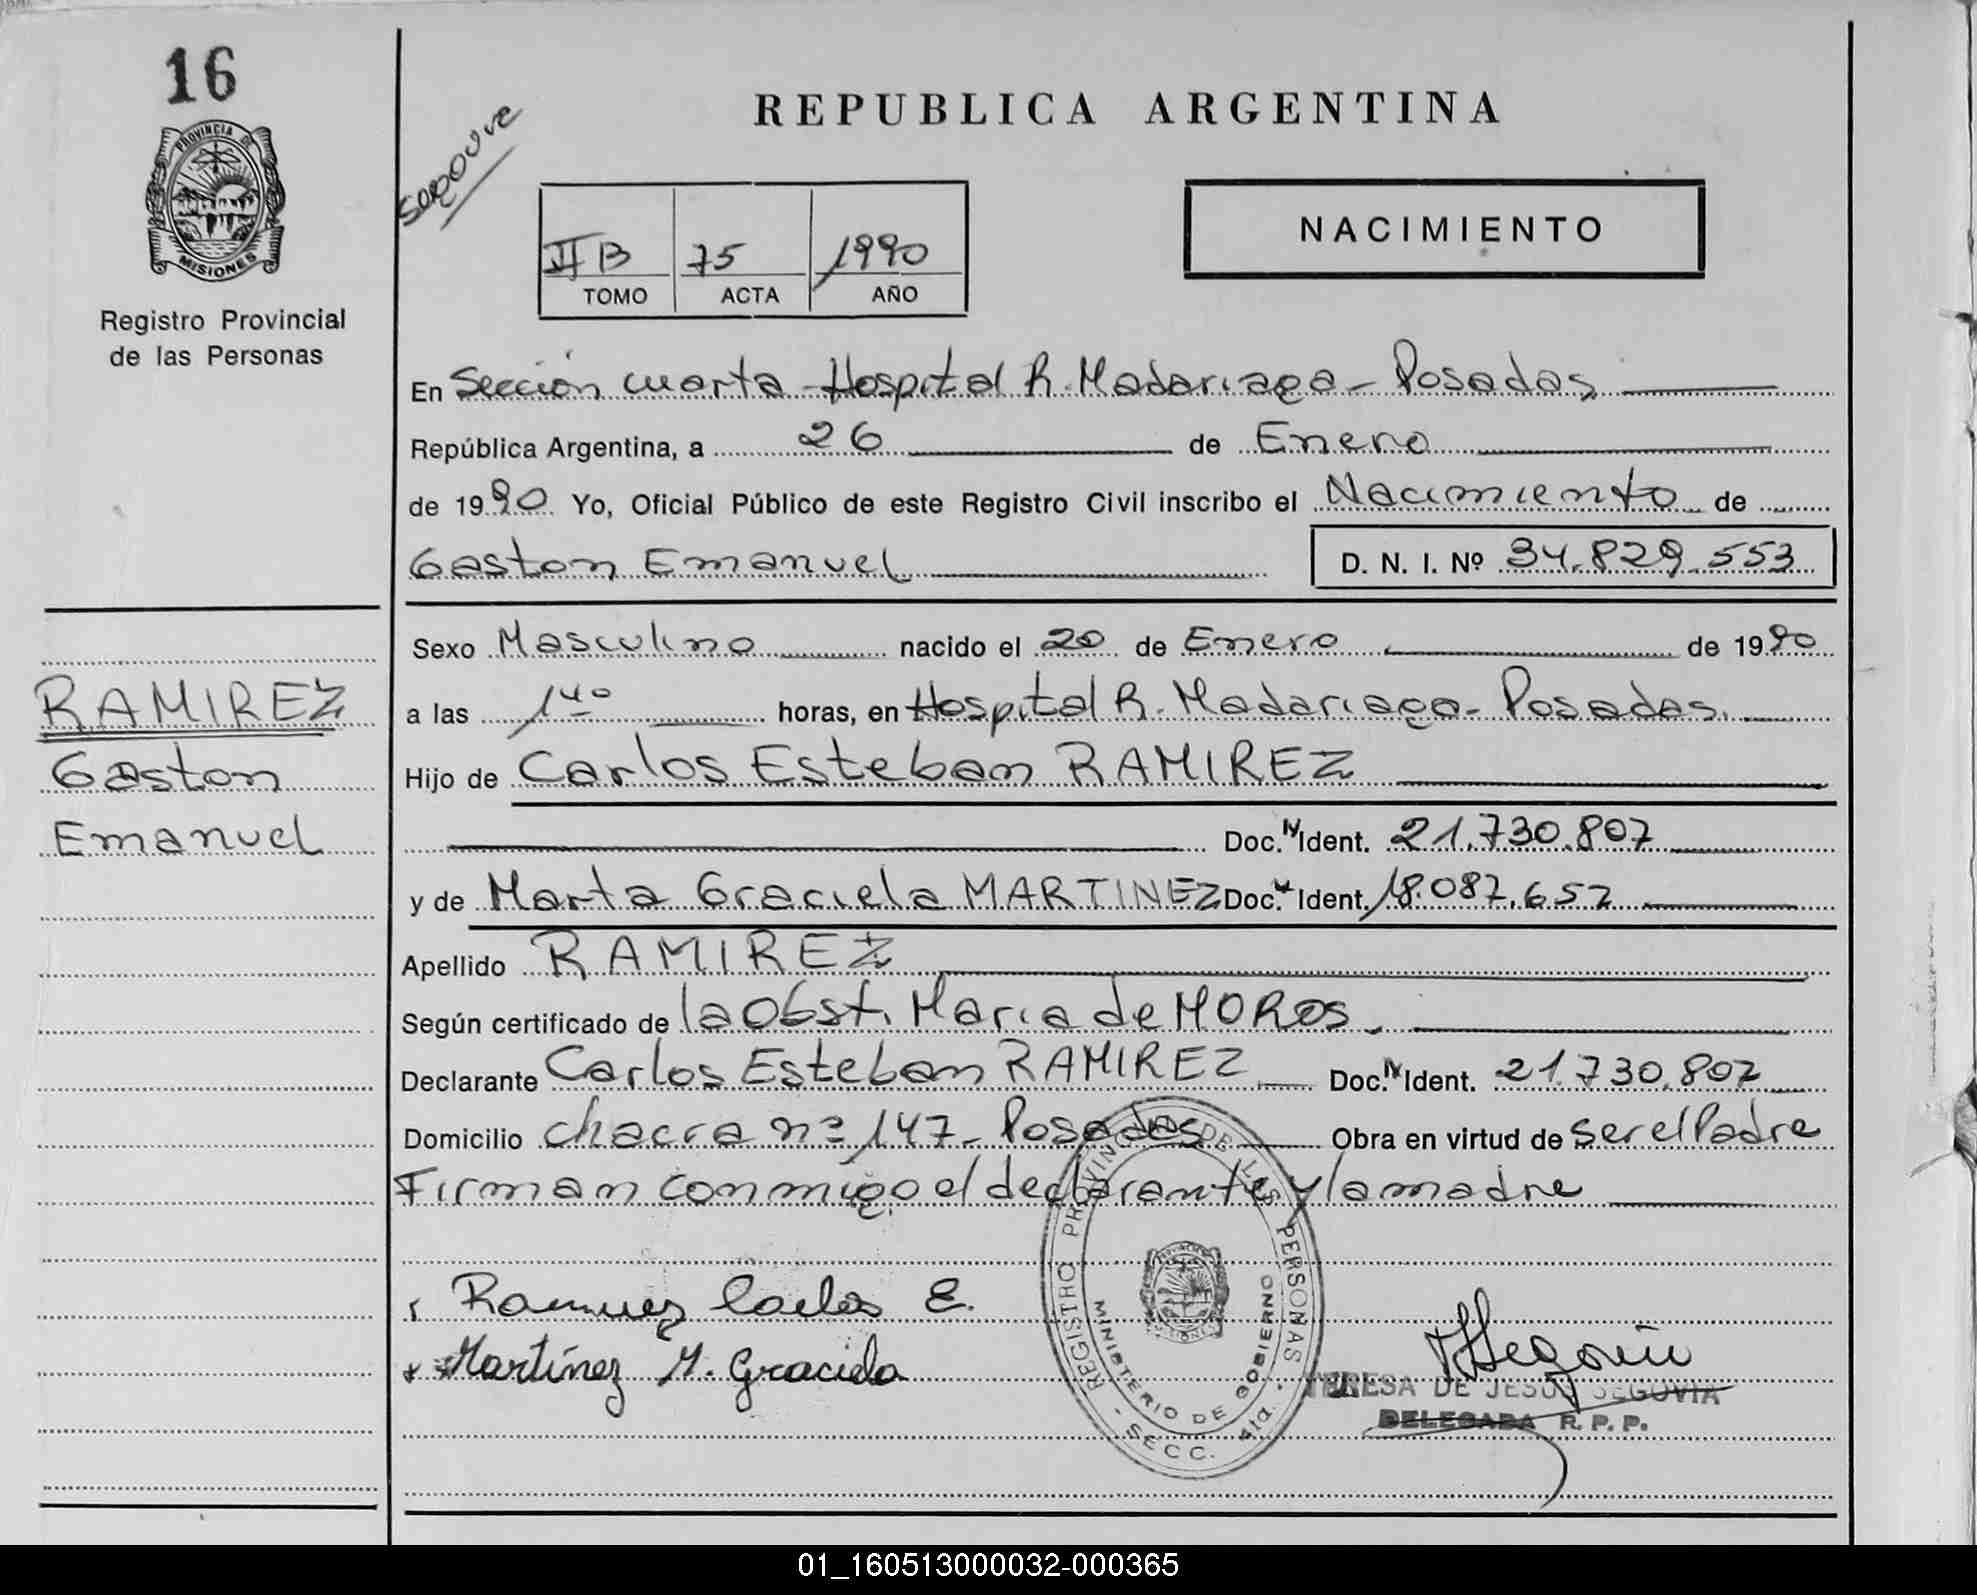 16
PROVINCIA DE
MISIONES
Registro Provincial
de las Personas
RAMIREZ
Gaston
Emanuel
REPUBLICA ARGENTINA
II B 75 1990
TOMO ACTA AÑO
NACIMIENTO
En Sección cuarta - Hospital R. Madariaga - Posadas
República Argentina, a 26 de Enero
de 1990 Yo, Oficial Público de este Registro Civil inscribo el Nacimiento de
Gaston Emanuel D. N. I. Nº 34.829.553
Sexo Masculino nacido el 20 de Enero de 1990
a las 14º horas, en Hospital R. Madariaga - Posadas.
Hijo de Carlos Esteban RAMIREZ
Doc. N Ident. 21.730.807
y de Marta Graciela MARTINEZ Doc. Ident. 18.087.657
Apellido RAMIREZ
Según certificado de la Obst. Maria de MOROS.
Declarante Carlos Esteban RAMIREZ Doc. N Ident. 21.730.807
Domicilio chacra nº 147 - Posadas Obra en virtud de ser el Padre
Firman conmigo el declarante y la madre
Ramirez Carlos E.
Martínez M. Graciela
REGISTRO PROVINCIAL DE LAS PERSONAS
MINISTERIO DE GOBIERNO
- SECC. 4ta. -
TERESA DE JESUS SEGOVIA
DELEGADA R. P. P.
01_160513000032-000365